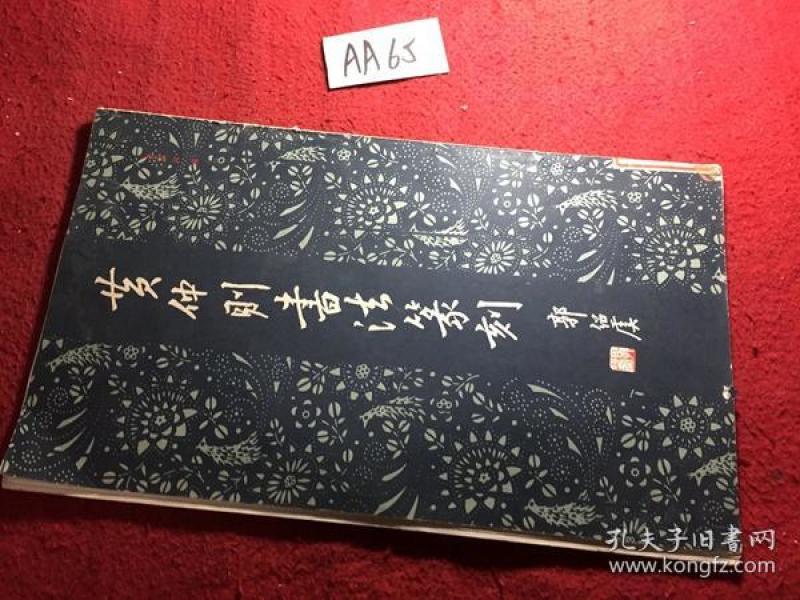 AA65
黄仲则書法篆刻
郭绍虞
孔夫子旧書网
www.kongfz.com